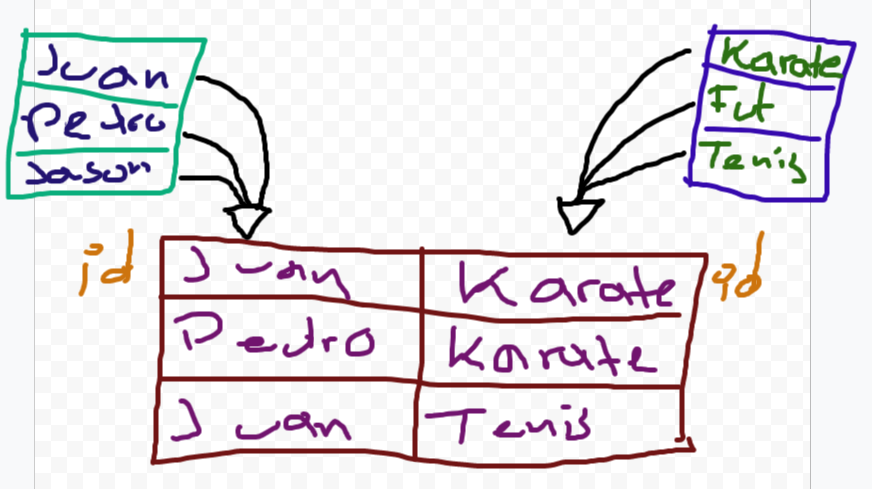 Juan
Pedro
Jason
Karate
Fut
Tenis
id
id
Juan Karate
Pedro Karate
Juan Tenis